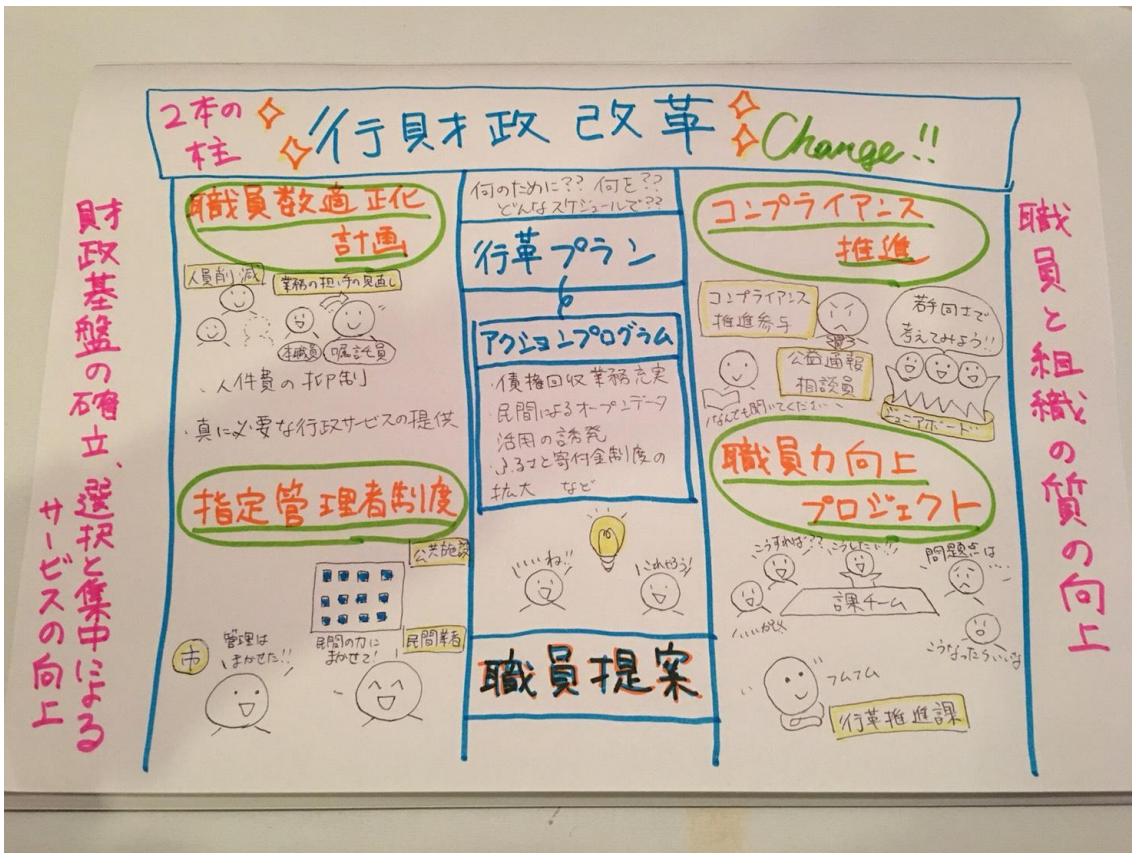 2本の
柱
行財政改革
Change!!
財政基盤の確立、選択と集中による
サービスの向上
職員数適正化
計画
人員削減
業務の担い手の見直し
本職員
嘱託員
・人件費の抑制
・真に必要な行政サービスの提供
指定管理者制度
公共施設
市
管理は
まかせた!!
民間の力に
まかせて!
民間業者
何のために?? 何を??
どんなスケジュールで??
行革プラン
アクションプログラム
・債権回収業務充実
・民間によるオープンデータ
活用の誘発
・ふるさと寄付金制度の
拡大 など
いいね!!
これやろう!
職員提案
コンプライアンス
推進
コンプライアンス
推進参与
公益通報
相談員
なんでも聞いてください
若手同士で
考えてみよう!!
ジュニアボード
職員力向上
プロジェクト
こうすれば??
こうしたい!!
問題点は...
課チーム
いいかも
こうなったらいいな
フムフム
行革推進課
職員と組織の質の向上